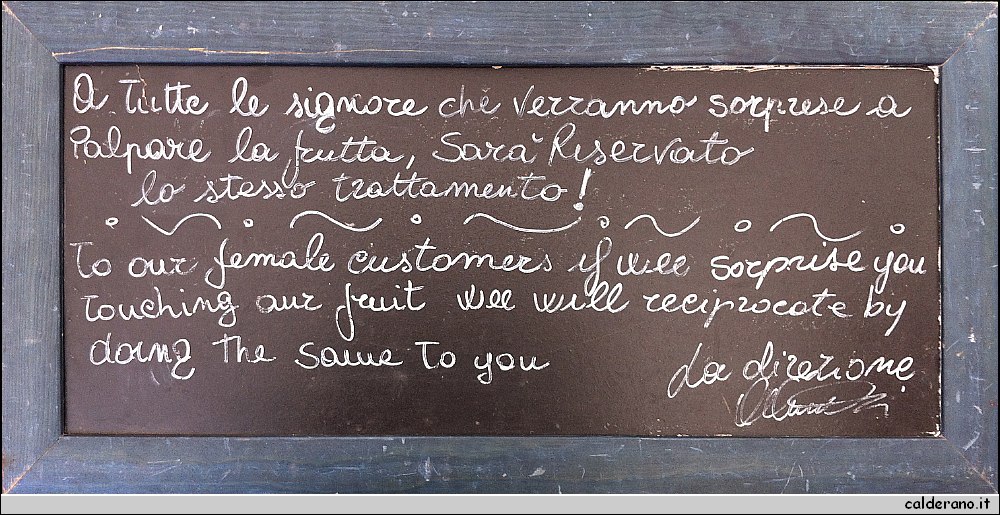 A tutte le signore che verranno sorprese a
Palpare la frutta, Sarà Riservato
lo stesso trattamento!
To our female customers if wee sorprise you
touching our fruit wee will reciprocate by
doing the same to you
La direzione
calderano.it